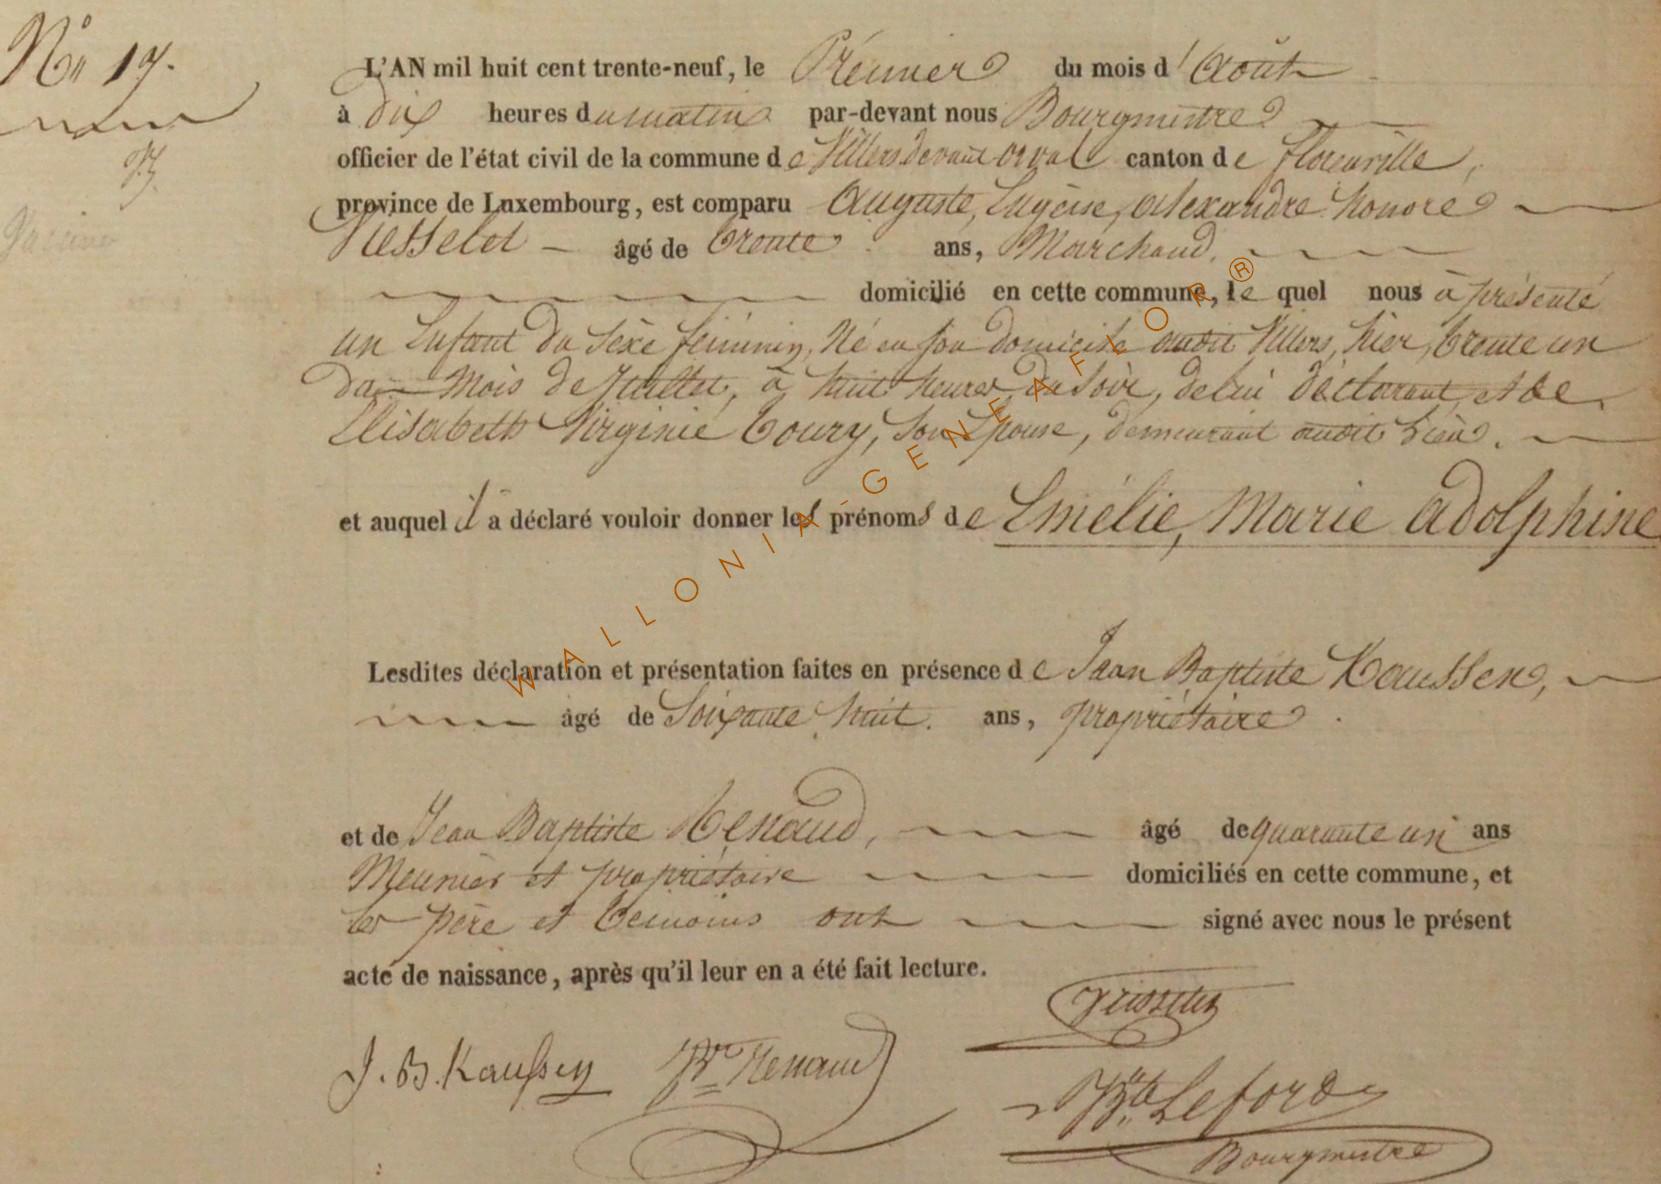 N° 17.
L'AN mil huit cent trente-neuf, le Prémier du mois d'Août
à dix heures du matin par-devant nous Bourgmestre
officier de l'état civil de la commune de Villers devant orval canton de florenville,
province de Luxembourg, est comparu Auguste, Eugène, alexandre honoré
âgé de trente ans, Marchand,
domicilié en cette commune, le quel nous à présenté
un Enfant du Sèxe féminin, Né en son domicile audit Villers, hier, trente un
du Mois de Juillet, à huit heures du Soir, de lui déclarant et de
Elisabeth Virginie Toury, Son Epouse, demeurant audit lieu.
et auquel il a déclaré vouloir donner les prénoms de Emélie, Marie Adolphine
Lesdites déclaration et présentation faites en présence de Jean Baptiste Kaussen,
âgé de Soixante huit ans, propriétaire
et de Jean Baptiste Renaud, âgé de quarante un ans
Meunier et propriétaire domiciliés en cette commune, et
les père et témoins ont signé avec nous le présent
acte de naissance, après qu'il leur en a été fait lecture.
J. B. Kaussen Renaud
Bte Leford
Bourgmestre
WALLONIA-GENEAFLOR®